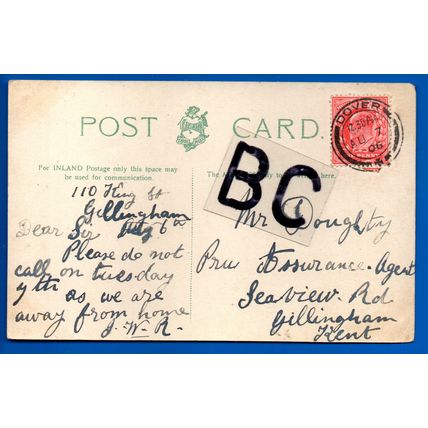 POST CARD.
For INLAND Postage only this space may
be used for communication.
The A
here.
BC
DOVER
AU 7
06
110 King St
Gillingham
Aug 6th
Dear Sir
Please do not
call on tuesday
7th as we are
away from home
J. W. R.
Mr Doughty
Pru Assurance Agent
Seaview Rd
Gillingham
Kent